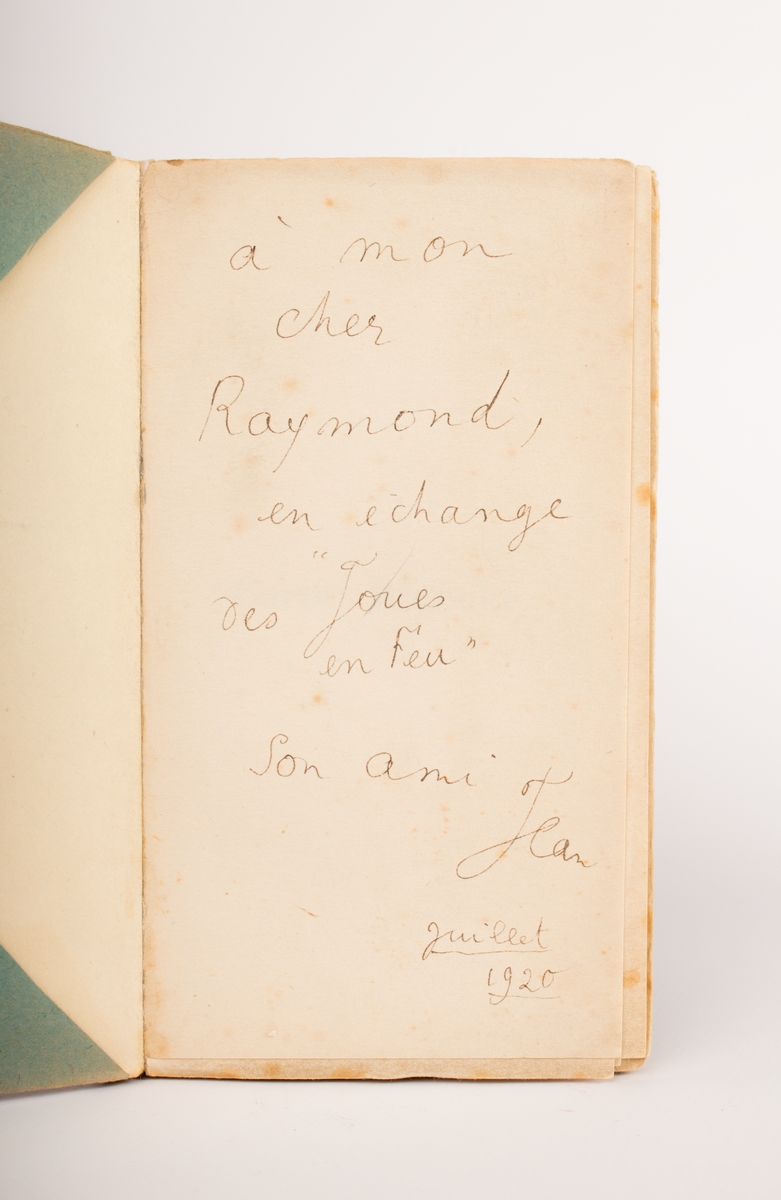 à mon
cher
Raymond,
en échange
des "Joues
en Feu"
Son ami
Jean
juillet
1920